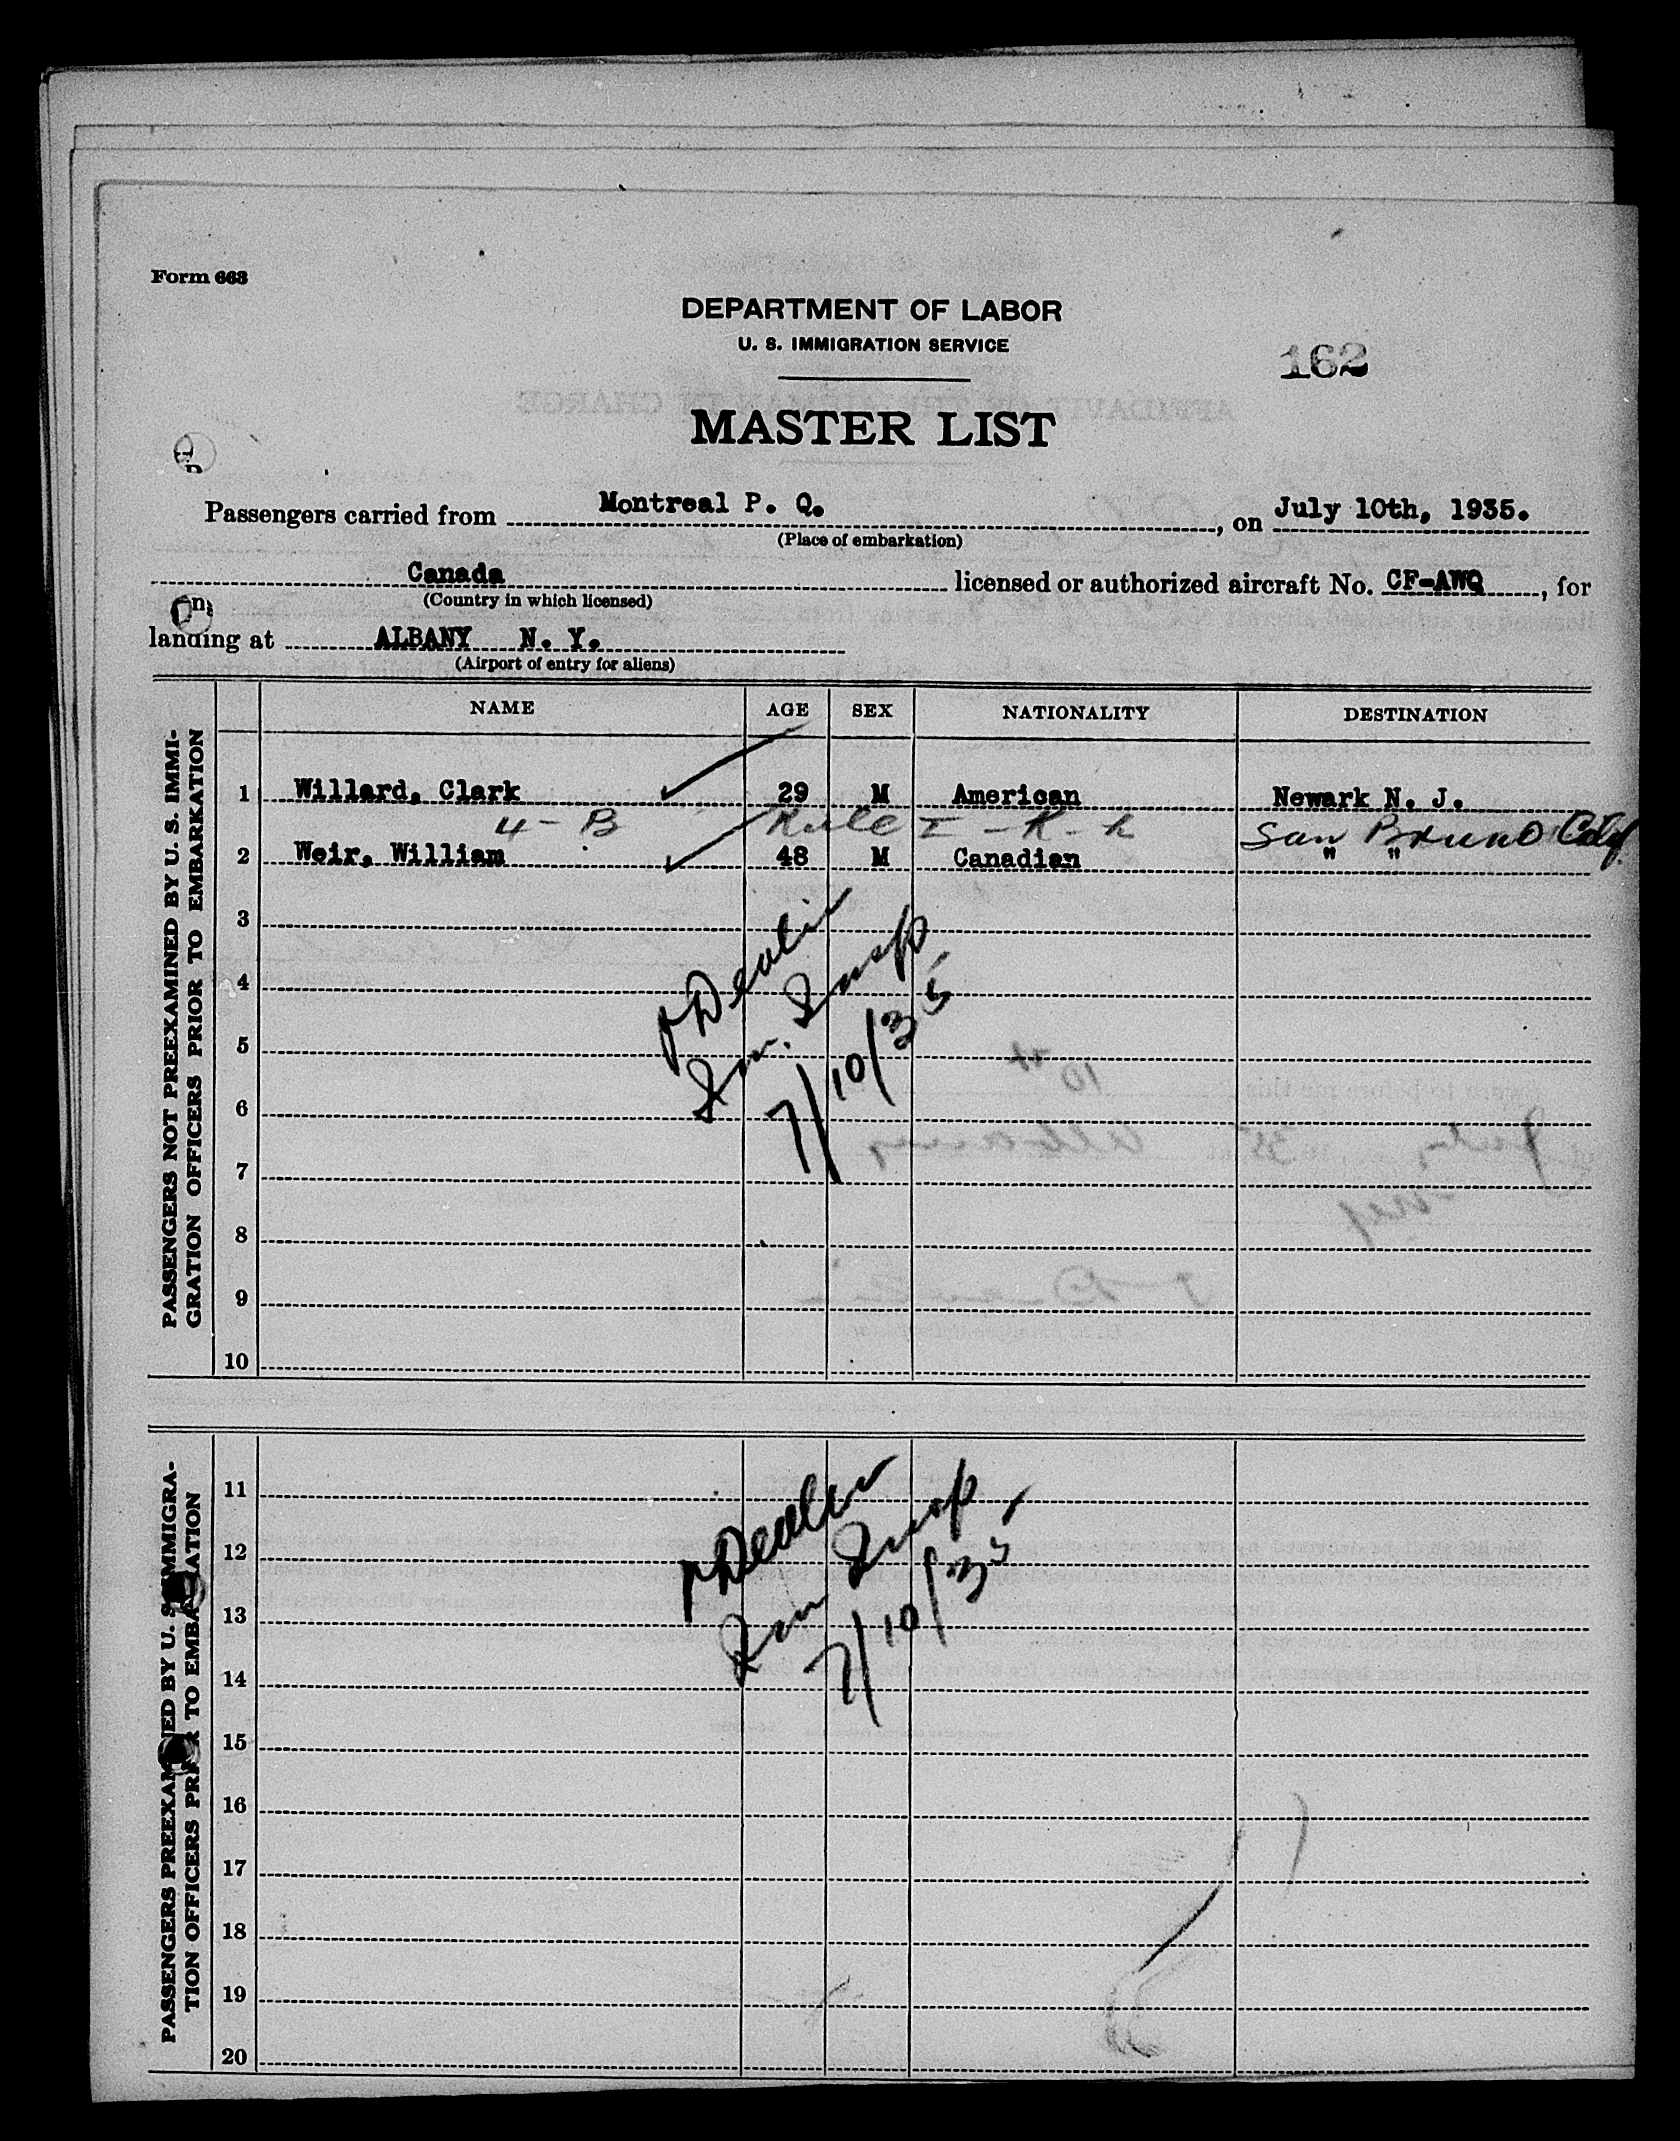 Form 663
DEPARTMENT OF LABOR
U. S. IMMIGRATION SERVICE
162
MASTER LIST
Passengers carried from Montreal P. Q. , on July 10th, 1935.
(Place of embarkation)
Canada licensed or authorized aircraft No. CF-AWQ , for
(Country in which licensed)
landing at ALBANY N. Y.
(Airport of entry for aliens)
PASSENGERS NOT PREEXAMINED BY U. S. IMMI-
GRATION OFFICERS PRIOR TO EMBARKATION
NAME AGE SEX NATIONALITY DESTINATION
1 Willard, Clark 29 M American Newark N. J.
4 - B Rule I - K - San Bruno Calif.
2 Weir, William 48 M Canadian " "
3
4
5
6
7
8
9
10
Devlin
Imm. Insp
7/10/35
PASSENGERS PREEXAMINED BY U. S. IMMIGRA-
TION OFFICERS PRIOR TO EMBARKATION
11
12
13
14
15
16
17
18
19
20
Devlin
Imm Insp
7/10/35